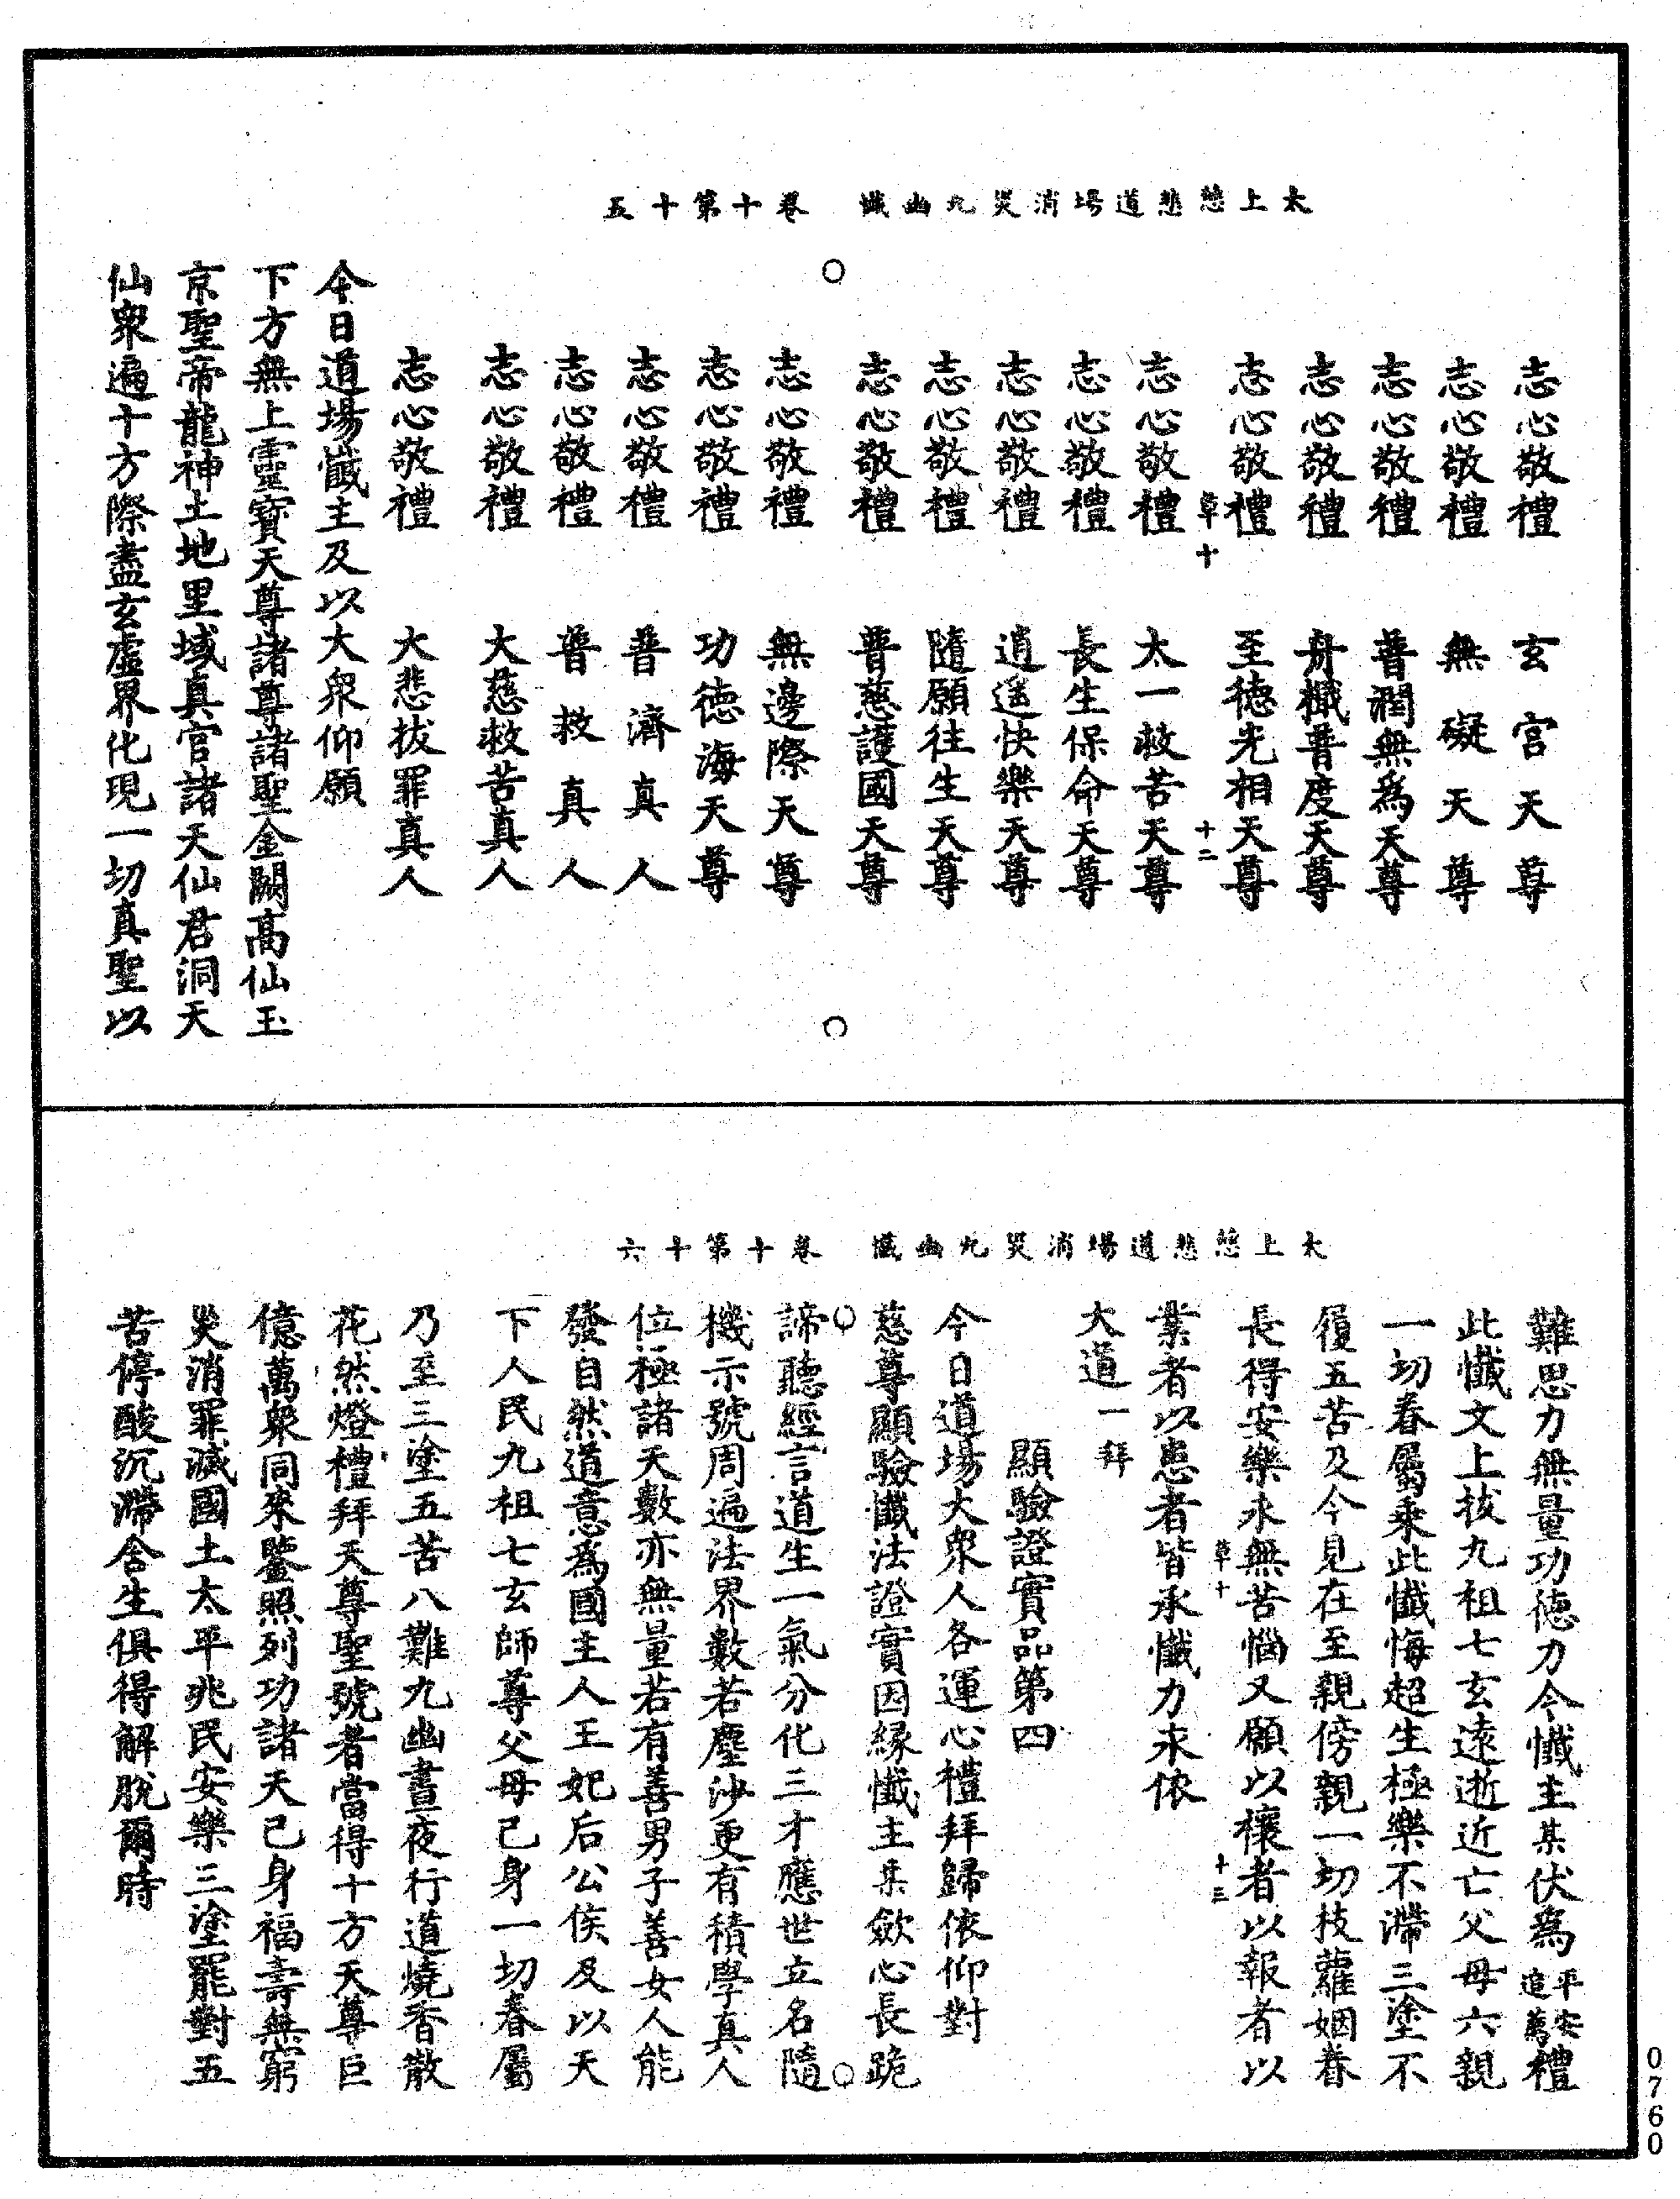 太上慈悲道場消災九幽懺　卷十　第十五
志心敬禮　玄宮天尊
志心敬禮　無礙天尊
志心敬禮　普潤無為天尊
志心敬禮　舟檝普度天尊
志心敬禮　至德光相天尊
草十　十二
志心敬禮　太一救苦天尊
志心敬禮　長生保命天尊
志心敬禮　逍遥快樂天尊
志心敬禮　隨願往生天尊
志心敬禮　普慈護國天尊
志心敬禮　無邊際天尊
志心敬禮　功德海天尊
志心敬禮　普濟真人
志心敬禮　普救真人
志心敬禮　大慈救苦真人
志心敬禮　大悲拔罪真人
今日道場懺主及以大衆仰願
下方無上靈寶天尊諸尊諸聖金闕高仙玉
京聖帝龍神土地里域真官諸天仙君洞天
仙衆遍十方際盡玄虛界化現一切真聖以
太上慈悲道場消災九幽懺　卷十　第十六
難思力無量功德力今懺主某伏為平安追薦禮
此懺文上拔九祖七玄遠逝近亡父母六親
一切眷屬乘此懺悔超生極樂不滯三塗不
履五苦及今見在至親傍親一切枝蘿姻眷
長得安樂永無苦惱又願以穰者以報者以
草十　十三
業者以患者皆承懺力求依
大道一拜
顯驗證實品第四
今日道場大衆人各運心禮拜歸依仰對
慈尊顯驗懺法證實因緣懺主某歛心長跪
諦聽經言道生一氣分化三才應世立名隨
機示號周遍法界數若塵沙更有積學真人
位極諸天數亦無量若有善男子善女人能
發自然道意為國主人王妃后公侯及以天
下人民九祖七玄師尊父母己身一切眷屬
乃至三塗五苦八難九幽晝夜行道燒香散
花然燈禮拜天尊聖號者當得十方天尊巨
億萬衆同來鑒照列功諸天己身福壽無窮
災消罪滅國土太平兆民安樂三塗罷對五
苦停酸沉滯含生俱得解脫爾時
0760